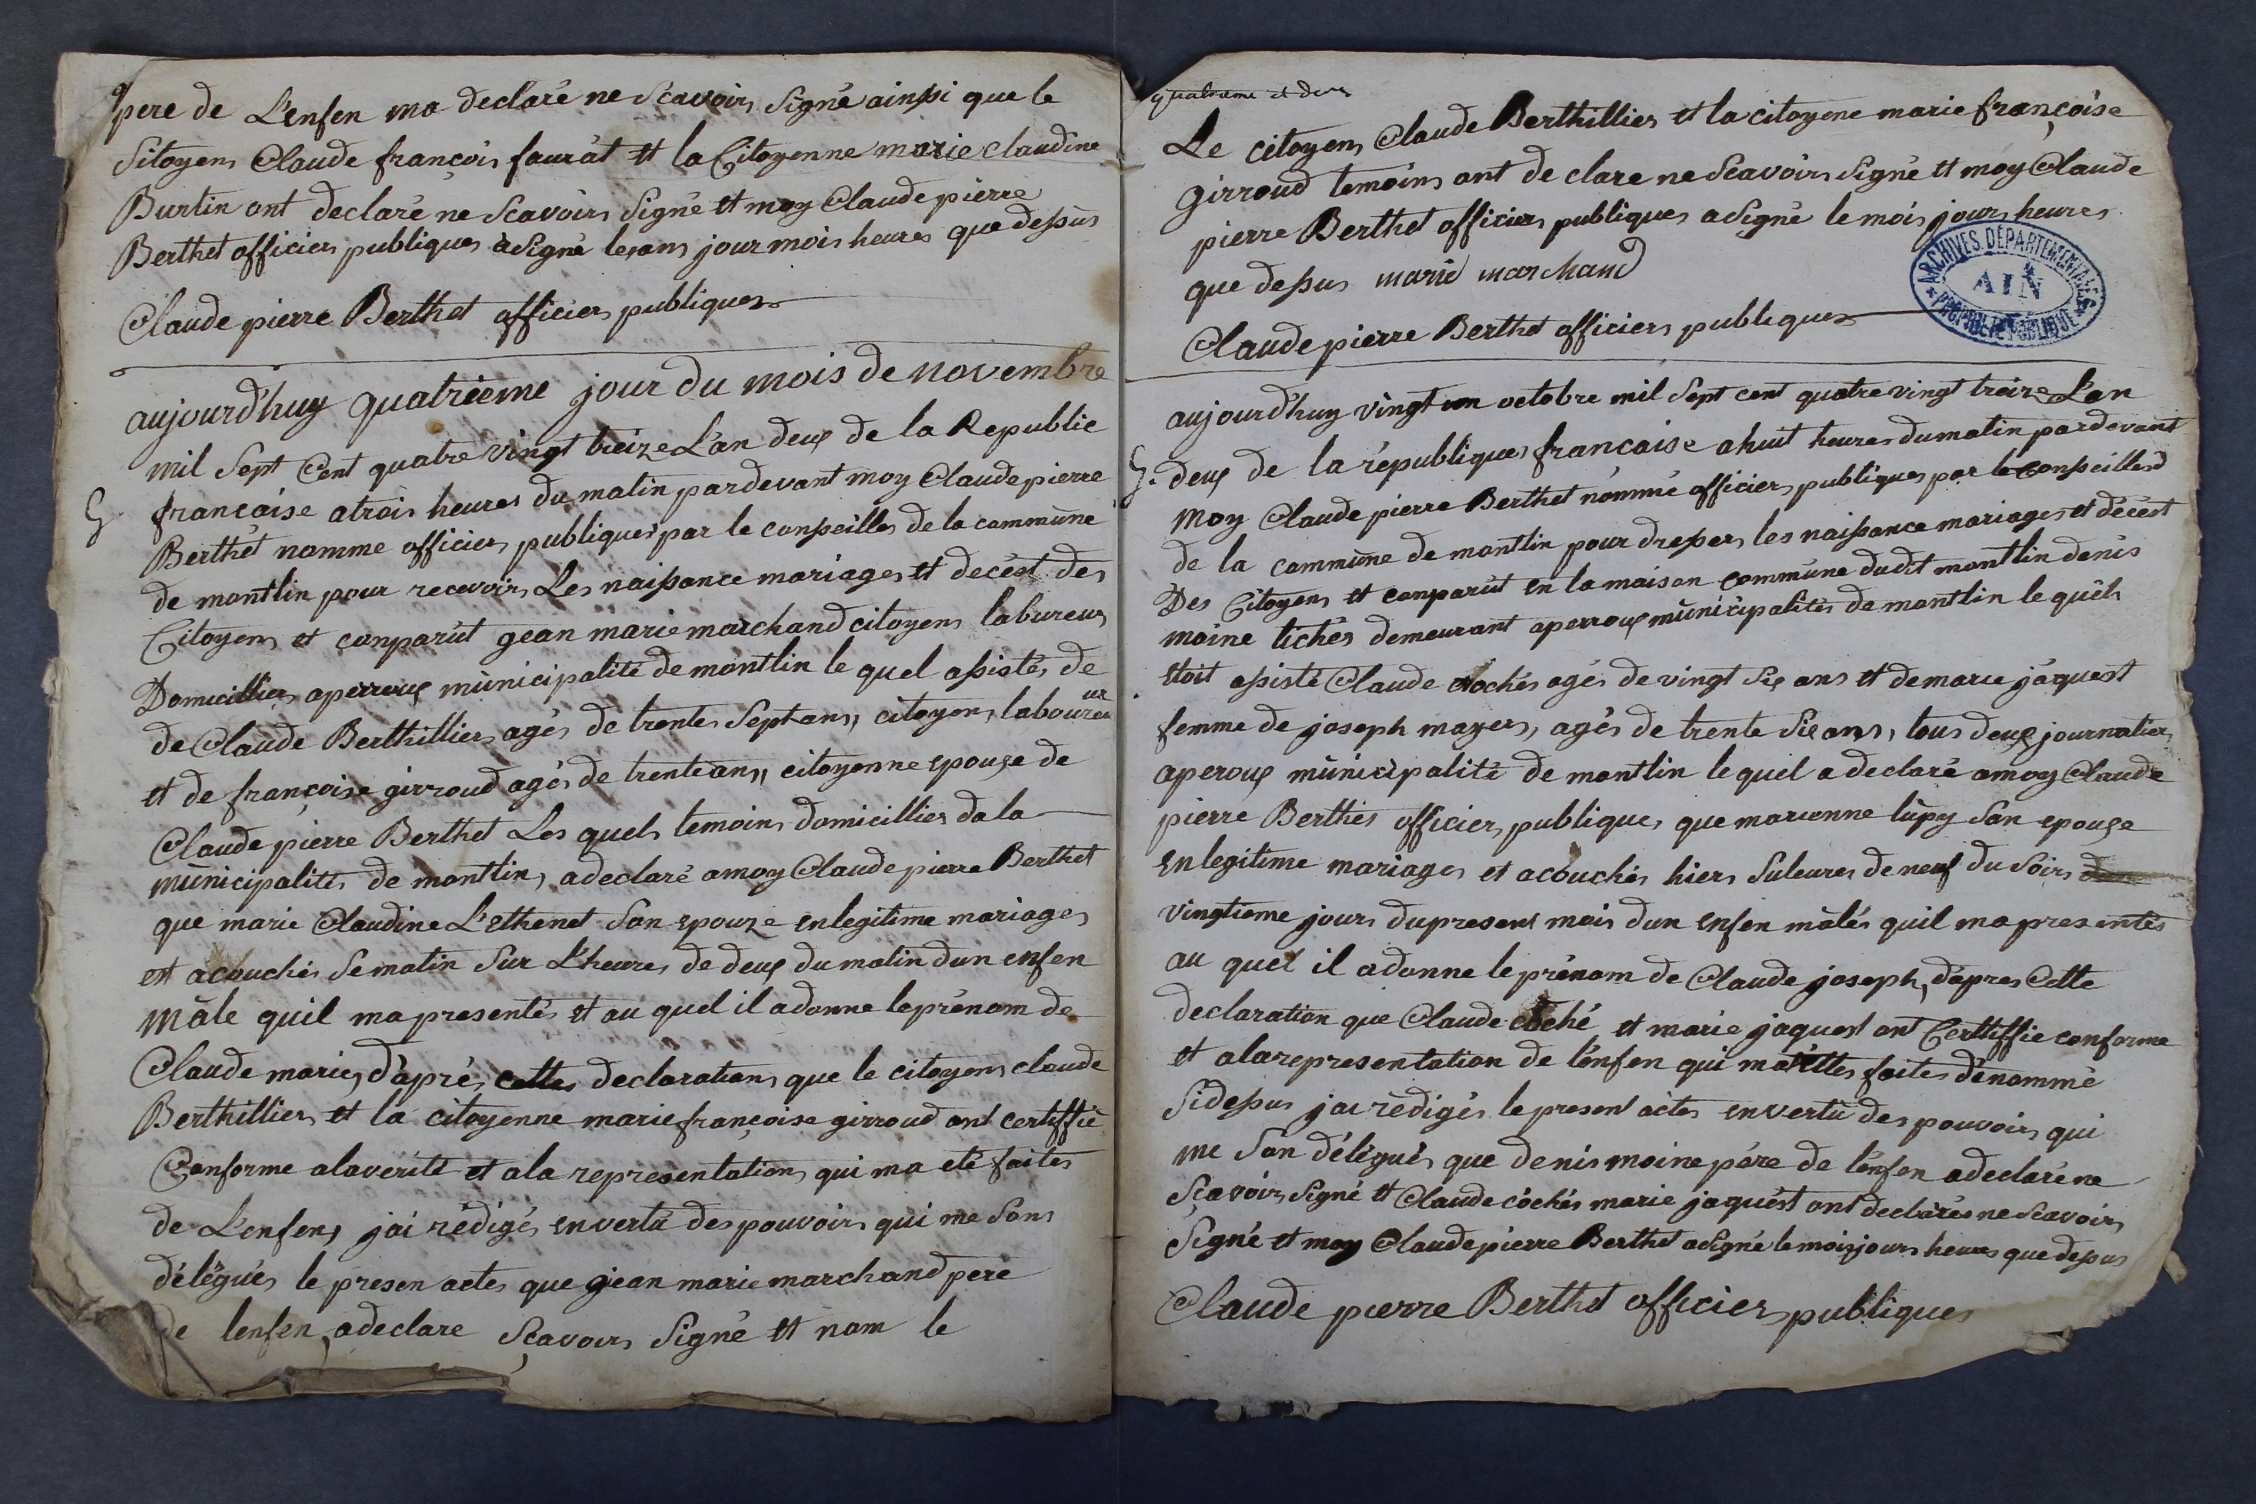 pere de L'enfen ma declaré ne Scavoir Signé ainssi que le
Sitoyen Claude françois faurat et la Citoyenne marie claudine
Burtin ont declaré ne Scavoir Signé et moy Claude pierre
Berthet officier publiques a Signé les ans jour mois heures que dessus
Claude pierre Berthet officier publiques
aujourd'huy quatrieme jour du mois de novembre
mil Sept Cent quatre vingt treize L'an deux de la Republic
francaise a trois heures du matin pardevant moy Claude pierre
Berthet nomme officier publiques par le conseilles de la commune
de montlin pour recevoir Les naissance mariages et decést des
Citoyens et conparut gean marie marchand citoyen labureur
Domicillier aperroux municipalité de montlin le quel assistés de
de Claude Berthillier agés de trentes Sept ans, citoyen laboureur
et de françoise girroud agés de trente ans, citoyenne epouse de
Claude pierre Berthet Les quels temoins domicillier da la
municipalités de montlin, a declaré a moy Claude pierre Berthet
que marie Claudine L'ethenet Son epouze en legitime mariages
est acouchés Se matin Sur L'heures de deux du matin dun enfen
mâle quil ma presentés et au quel il a donne le prénom de
Claude maries, d'aprés cettes declarations que le citoyens claude
Berthillier et la citoyenne marie françoise girroud ont certiffié
Conforme a la verité et a la representations qui ma eté faites
de L'enfens jai rédigés en vertu des pouvoirs qui me Sons
délégués le presen actes que gean marie marchand pere
de lenfen, a declare Scavoir Signé et nom le
quatrieme et deux
Le citoyens Claude Berthillier et la citoyene marie françoise
girroud temoins ont de clare ne Scavoir Signé et moy Claude
pierre Berthet officier publiques a Signé le mois jours heures
que dessus marie marchand
ARCHIVES DÉPARTEMENTALES
AIN
PROPRIÉTÉ PUBLIQUE
Claude pierre Berthet officiers publiques
aujourd'huy vingt un octobre mil Sept cent quatre vingt treize L'an
deux de la républiques francaise a huit heures du matin pardevant
moy Claude pierre Berthet nómmé officiers publiques par le conseilles
de la commune de montlin pour dresser les naissance mariages et décést
Des Citoyens et conparut en la maison commune dudit montlin denis
moine tichés demeurant aperroux municipalités de montlin le quél
etoit assisté Claude cochés agés de vingt Six ans et de marie jaquest
femme de joseph mayer, agés de trente Six ans, tous deux journalier
aperoux municipalité de montlin le quel a declaré a moy Claude
pierre Berthés officier publiques que marianne lupy Son epouse
en legitime mariages et acouchés hiers Suleures de neuf du Soir
vingtieme jours du present mois dun enfen mâlés quil ma presentés
au quel il a donne le prénom de Claude joseph, d'apres Cette
declaration que Claude cochê et marie jaquest ont Certtiffie conforme
et a la representation de lenfen qui ma ettes faites dénommé
Sidessus jai rédigés le present actes en vertu des pouvoirs qui
me Son délégués que denis moine pére de lenfen a declaré ne
Scavoir Signé et Claude cóchés marie jaquést ont declarés ne Scavoir
Signé et moy Claude pierre Berthet a Signé le mois jours heures que dessus
Claude pierre Berthet officier publiques